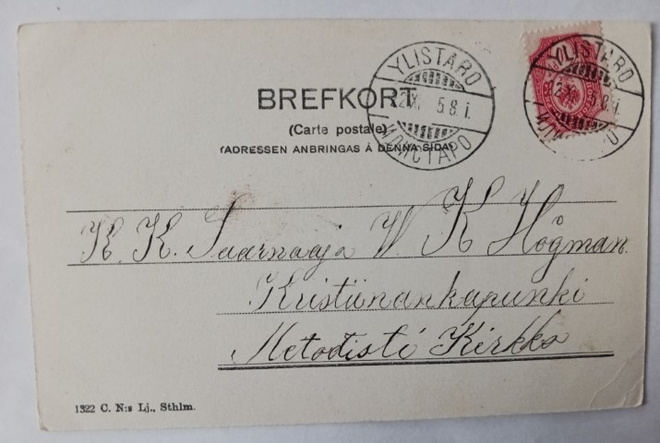 YLISTARO
12.X. 5.8.i.
ИЛИСТАРО
YLISTARO
BREFKORT
(Carte postale)
(ADRESSEN ANBRINGAS Å DENNA SIDA)
K. K. Saarnaaja W K Högman
Kristiinankapunki
Metodisti Kirkko
1322 C. N:s Lj., Sthlm.